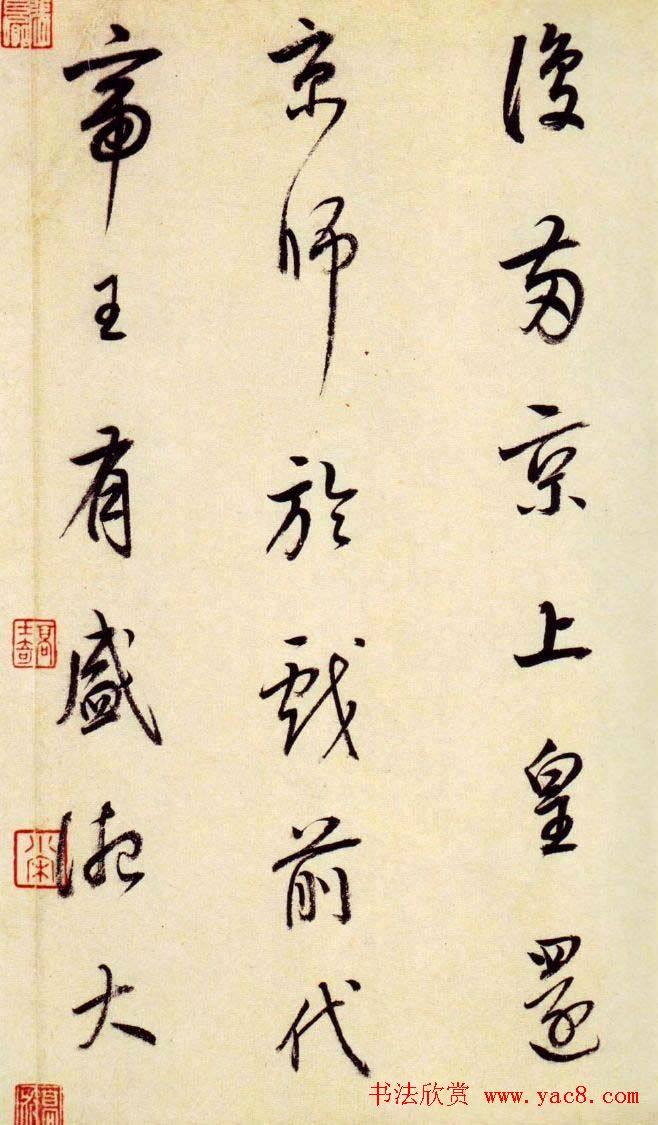 復兩京上皇還
京師於戲前代
帝王有盛德大
书法欣赏 www.yac8.com